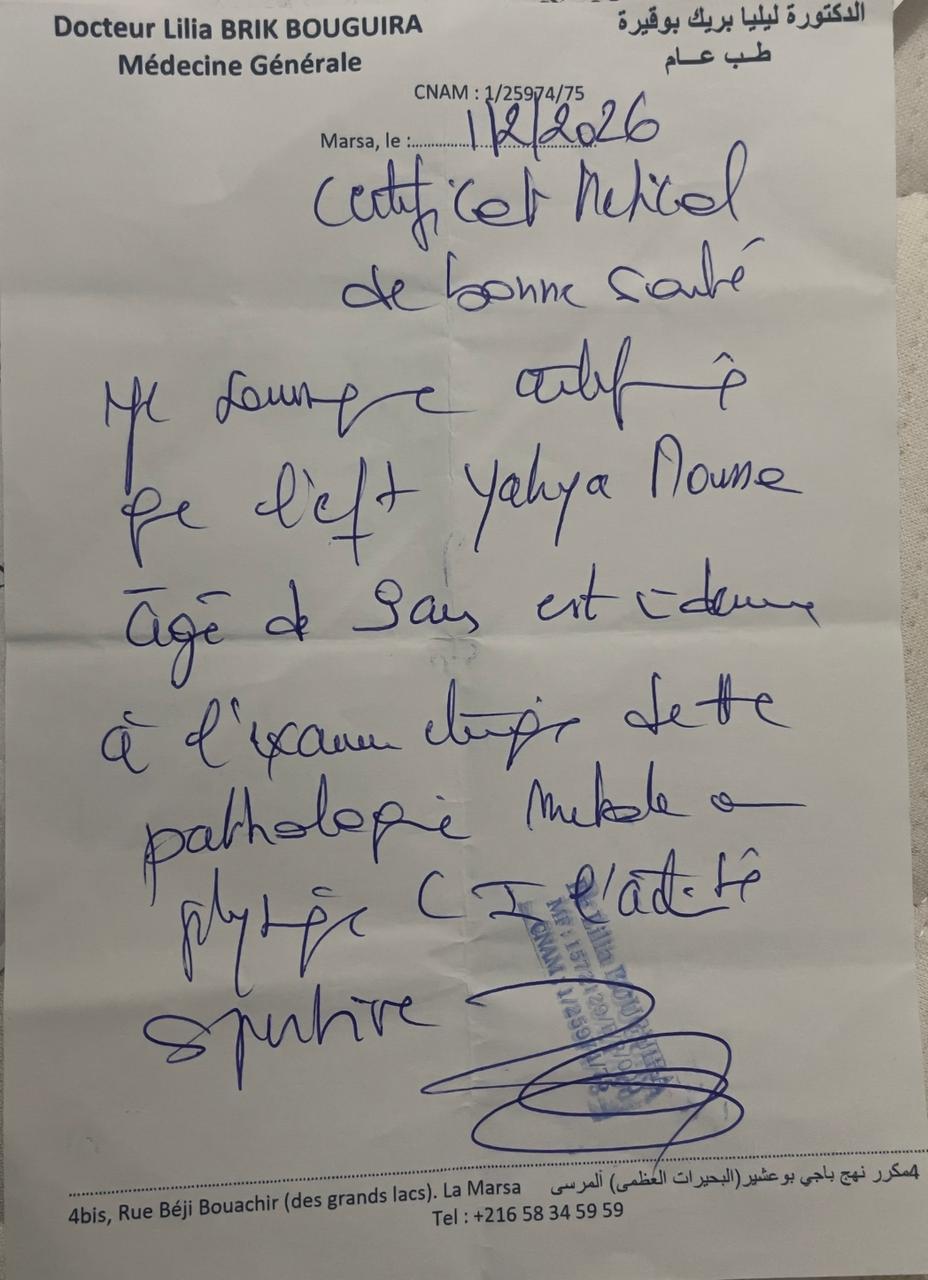 Docteur Lilia BRIK BOUGUIRA
Médecine Générale
الدكتورة ليليا بريك بوقيرة
طب عام
CNAM : 1/25974/75
Marsa, le : 1/2/2026
Certificat Medical
de bonne santé
Je certifie
que l'eft Yahya
âgé de 9 ans est
à l'examen de tte
pathologie mentale ou
physique CI l'activité
sportive
Dr Lilia BOUGUIRA
4bis, Rue Béji Bouachir (des grands lacs). La Marsa
4مكرر نهج باجي بوعشير(البحيرات العظمى) المرسى
Tel : +216 58 34 59 59